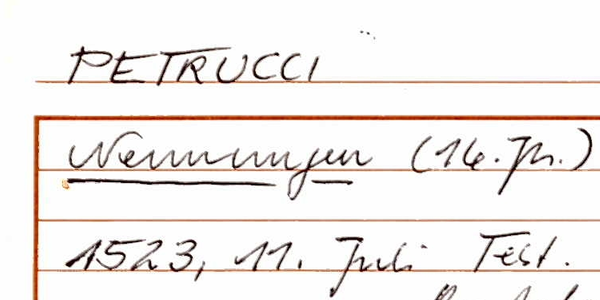 PETRUCCI
Nennungen (16. Jh.)
1523, 11. Juli Test.